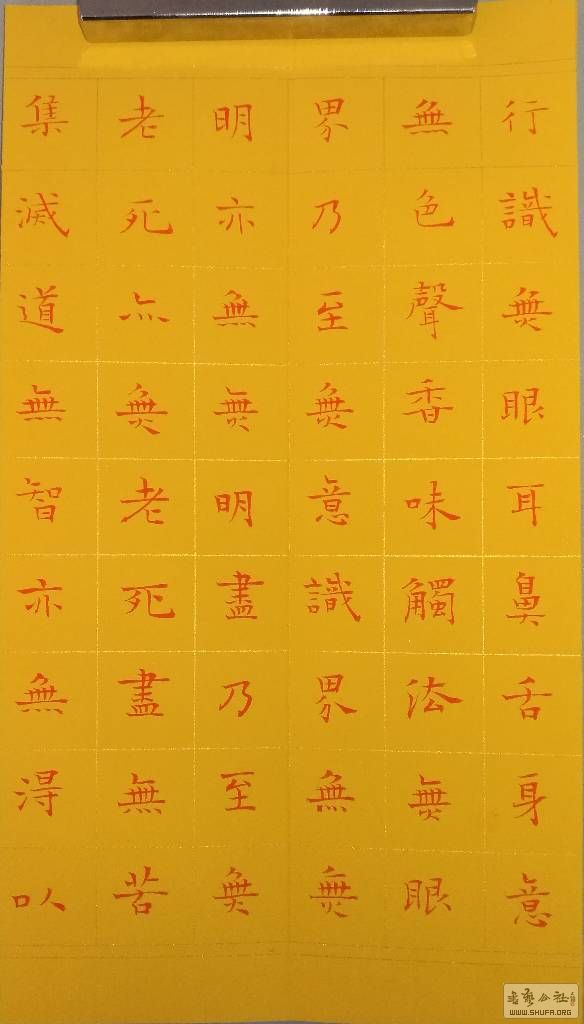 行識無眼耳鼻舌身意
無色聲香味觸法無眼
界乃至無意識界無無
明亦無無明盡乃至無
老死亦無老死盡無苦
集滅道無智亦無得以
书艺公社
WWW.SHUFA.ORG